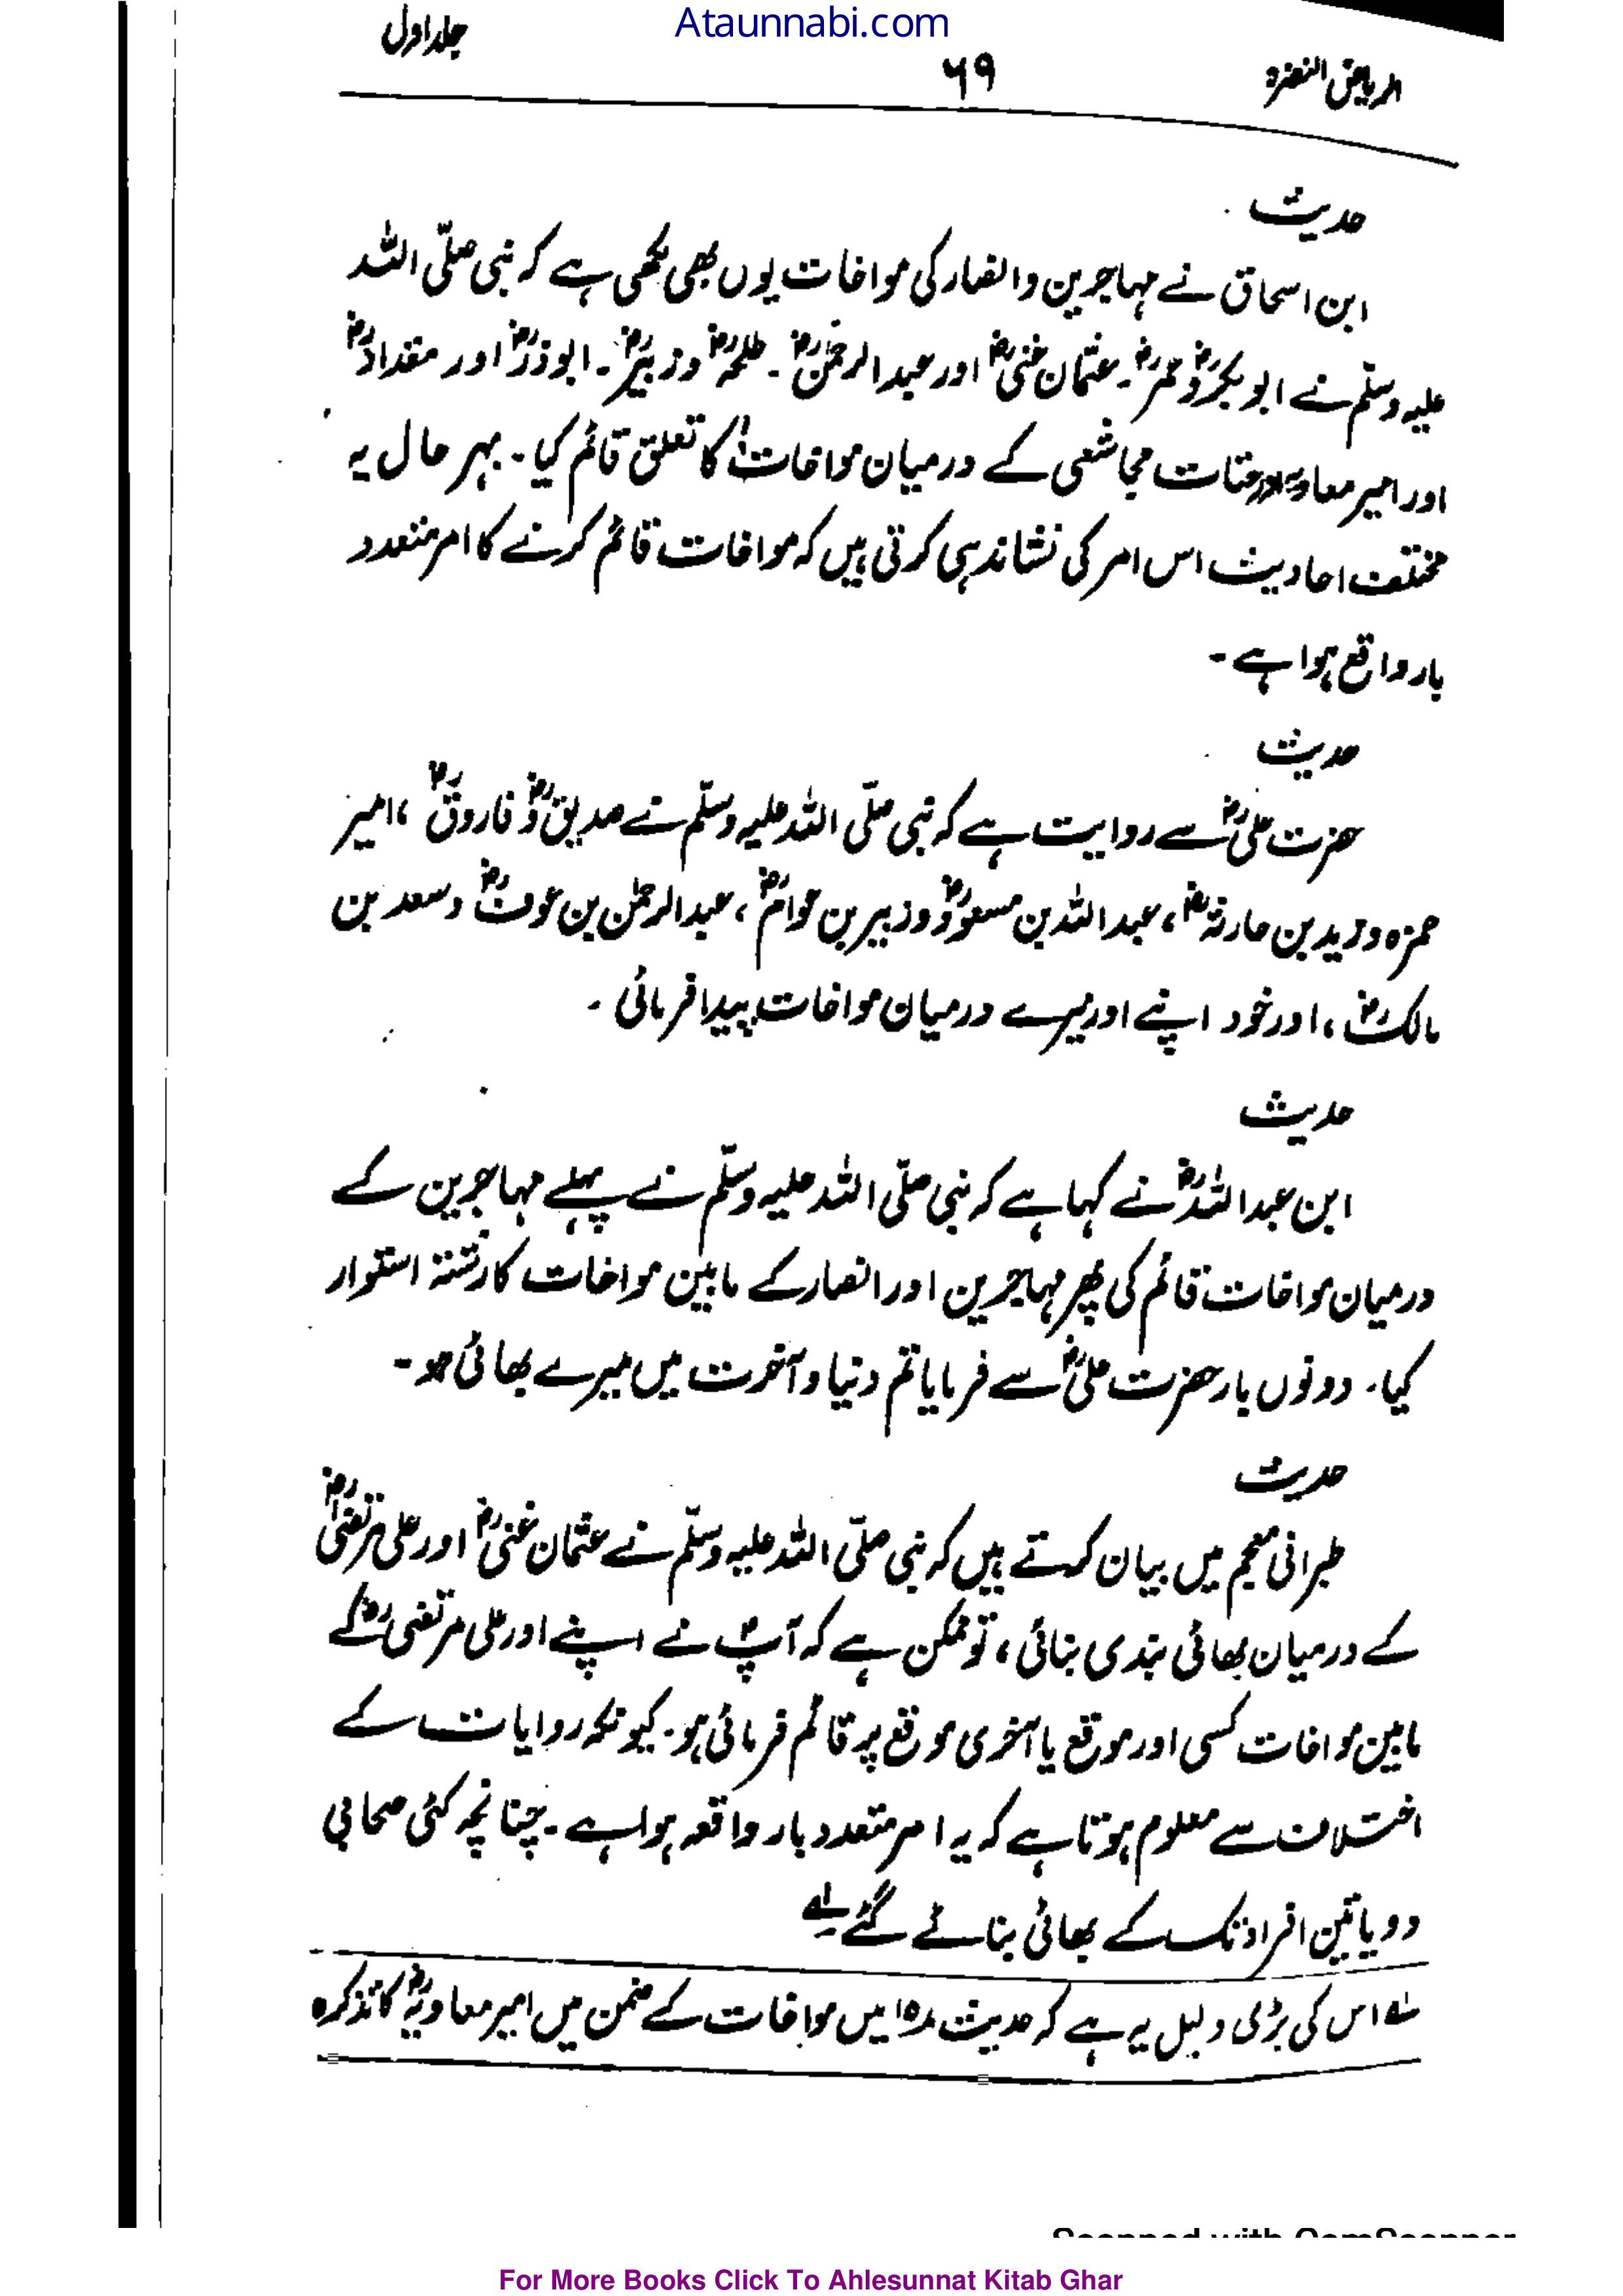 Ataunnabi.com
الریاض النضرہ ۶۹ جلد اول
حدیث
ابن اسحاق نے مہاجرین و انصار کی مواخات یوں بھی لکھی ہے کہ نبی صلّی اللہ
علیہ وسلّم نے ابو بکرؓ و عمرؓ۔ عثمان غنیؓ اور عبد الرحمٰنؓ۔ طلحہؓ و زبیرؓ۔ ابوذرؓ اور مقدادؓ
اور امیر معاویہ اور حتات مجاشعی کے درمیان مواخات کا تعلق قائم کیا۔ بہر حال یہ
مختلف احادیث اس امر کی نشاندہی کرتی ہیں کہ مواخات قائم کرنے کا امر متعدد
بار واقع ہوا ہے۔
حدیث
حضرت علیؓ سے روایت ہے کہ نبی صلّی اللہ علیہ وسلّم نے صدیقؓ و فاروقؓ، امیر
حمزہ و زید بن حارثہؓ، عبد اللہ بن مسعودؓ و زبیر بن عوامؓ، عبد الرحمٰن بن عوفؓ و سعد بن
مالکؓ، اور خود اپنے اور میرے درمیان مواخات پیدا فرمائی۔
حدیث
ابن عبد اللہؓ نے کہا ہے کہ نبی صلّی اللہ علیہ وسلّم نے پہلے مہاجرین کے
درمیان مواخات قائم کی پھر مہاجرین اور انصار کے مابین مواخات کا رشتہ استوار
کیا۔ دونوں بار حضرت علیؓ سے فرمایا تم دنیا و آخرت میں میرے بھائی ہو۔
حدیث
طبرانی معجم میں بیان کرتے ہیں کہ نبی صلّی اللہ علیہ وسلّم نے عثمان غنیؓ اور علی مرتضیٰؓ
کے درمیان بھائی بندی بنائی، تو ممکن ہے کہ آپؐ نے اپنے اور علی مرتضیٰؓ کے
مابین مواخات کسی اور موقع یا آخری موقع پر قائم فرمائی ہو۔ کیونکہ روایات کے
اختلاف سے معلوم ہوتا ہے کہ یہ امر متعدد بار واقعہ ہوا ہے۔ چنانچہ کئی صحابی
دو یا تین افراد تک کے بھائی بنائے گئے ۱ے
۱ے اس کی بڑی دلیل یہ ہے کہ حدیث ۱۵۸ میں مواخات کے ضمن میں امیر معاویہؓ کا تذکرہ
Scanned with CamScanner
For More Books Click To Ahlesunnat Kitab Ghar